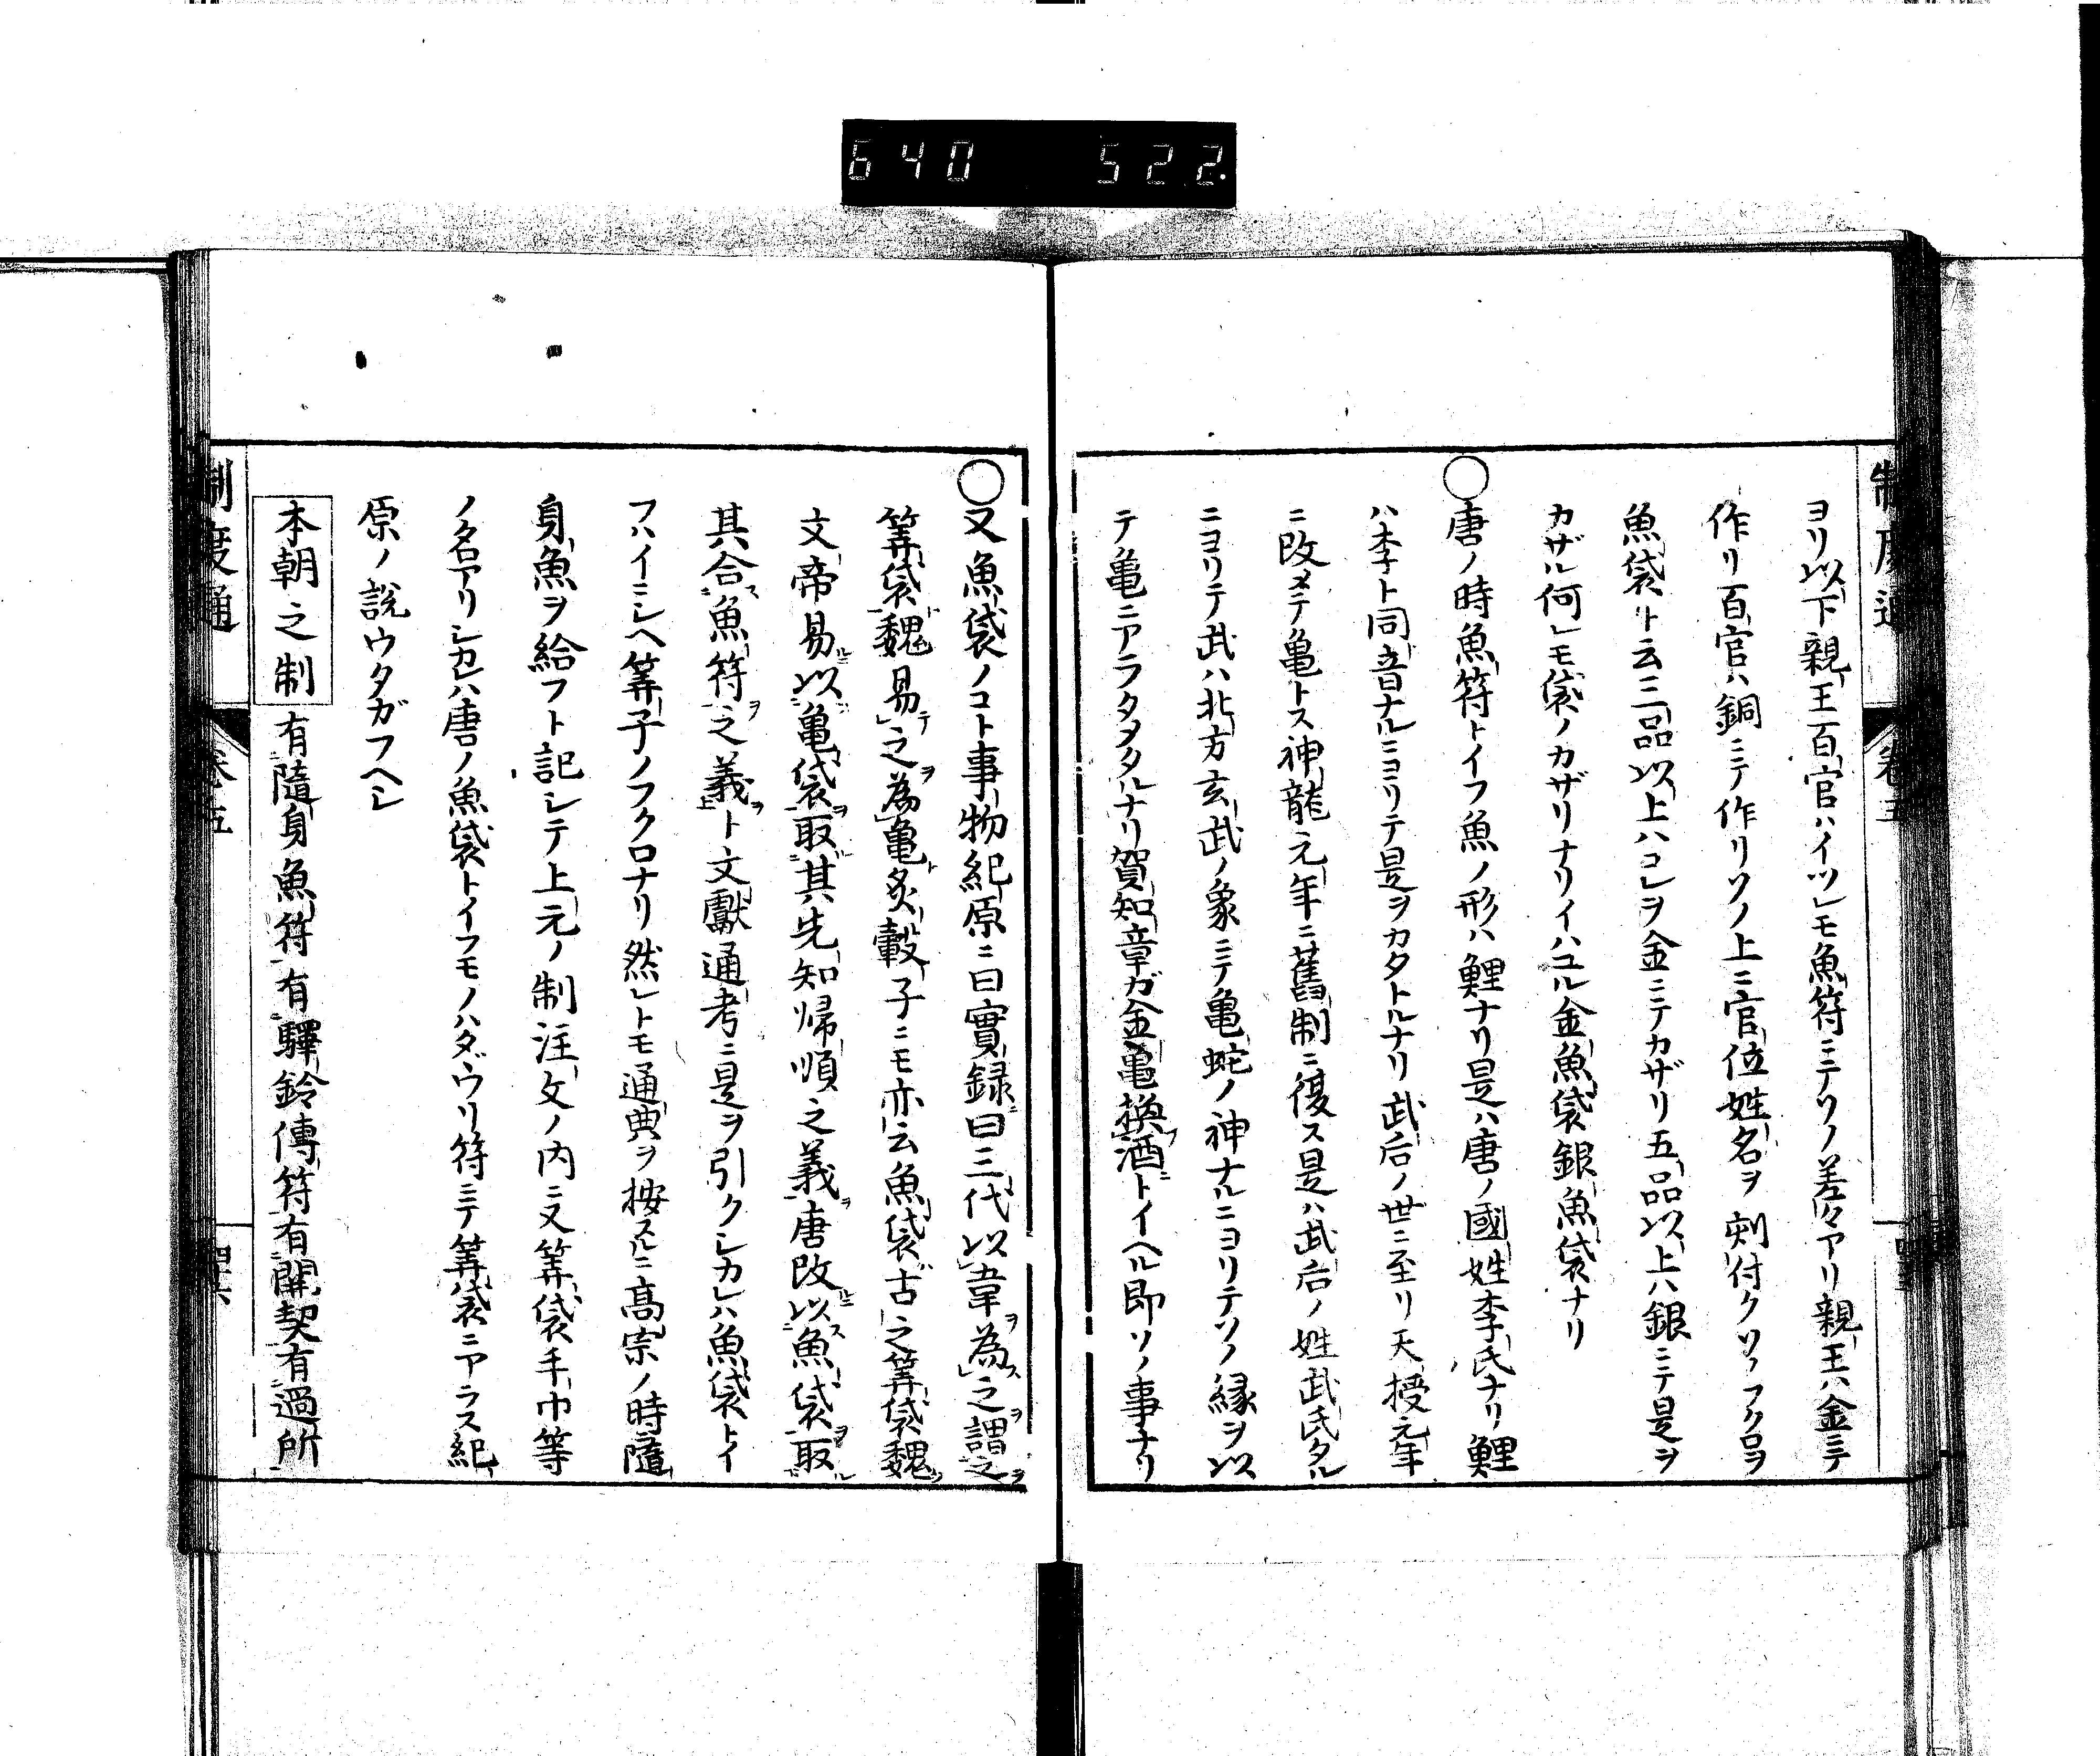 640 522.
制度通 卷五
ヨリ以下親王百官ハイツレモ魚符ニテソノ差々アリ親王ハ金ニテ
作リ百官ハ銅ニテ作リソノ上ニ官位姓名ヲ刻付クソノフクロヲ
魚袋ト云三品以上ハコレヲ金ニテカザリ五品以上ハ銀ニテ是ヲ
カザル何レモ袋ノカザリナリイハユル金魚袋銀魚袋ナリ
○唐ノ時魚符トイフ魚ノ形ハ鯉ナリ是ハ唐ノ國姓李氏ナリ鯉
ハ李ト同音ナルニヨリテ是ヲカタトルナリ武后ノ世ニ至リ天授元年
ニ改メテ亀トス神龍元年ニ舊制ニ復ス是ハ武后ノ姓武氏タル
ニヨリテ武ハ北方玄武ノ象ニテ亀蛇ノ神ナルニヨリテソノ縁ヲ以
テ亀ニアラタメタルナリ賀知章ガ金亀換酒トイヘル即ソノ事ナリ
○又魚袋ノコト事物紀原ニ曰實録曰三代以韋為之謂之
筭袋魏易之為亀炙轂子ニモ亦云魚袋古之筭袋魏
文帝易以亀袋取其先知帰順之義唐改以魚袋取
其合魚符之義ト文獻通考ニ是ヲ引クシカレハ魚袋トイ
フハイニシヘ筭子ノフクロナリ然レトモ通典ヲ按スルニ高宗ノ時隨
身魚ヲ給フト記シテ上元ノ制注文ノ内ニ又筭袋手巾等
ノ名アリシカレハ唐ノ魚袋トイフモノハダウリ符ニテ筭袋ニアラス紀
原ノ說ウタガフヘシ
本朝之制 有隨身魚符有驛鈴傳符有關契有過所
制度通 卷五